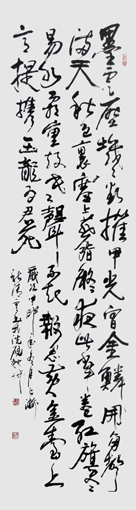 黑雲壓城城欲摧甲光向日金鱗開角聲
滿天秋色裏塞上燕脂凝夜紫半卷紅旗臨
易水霜重鼓寒聲不起報君黃金臺上
意提攜玉龍為君死
歲次甲申